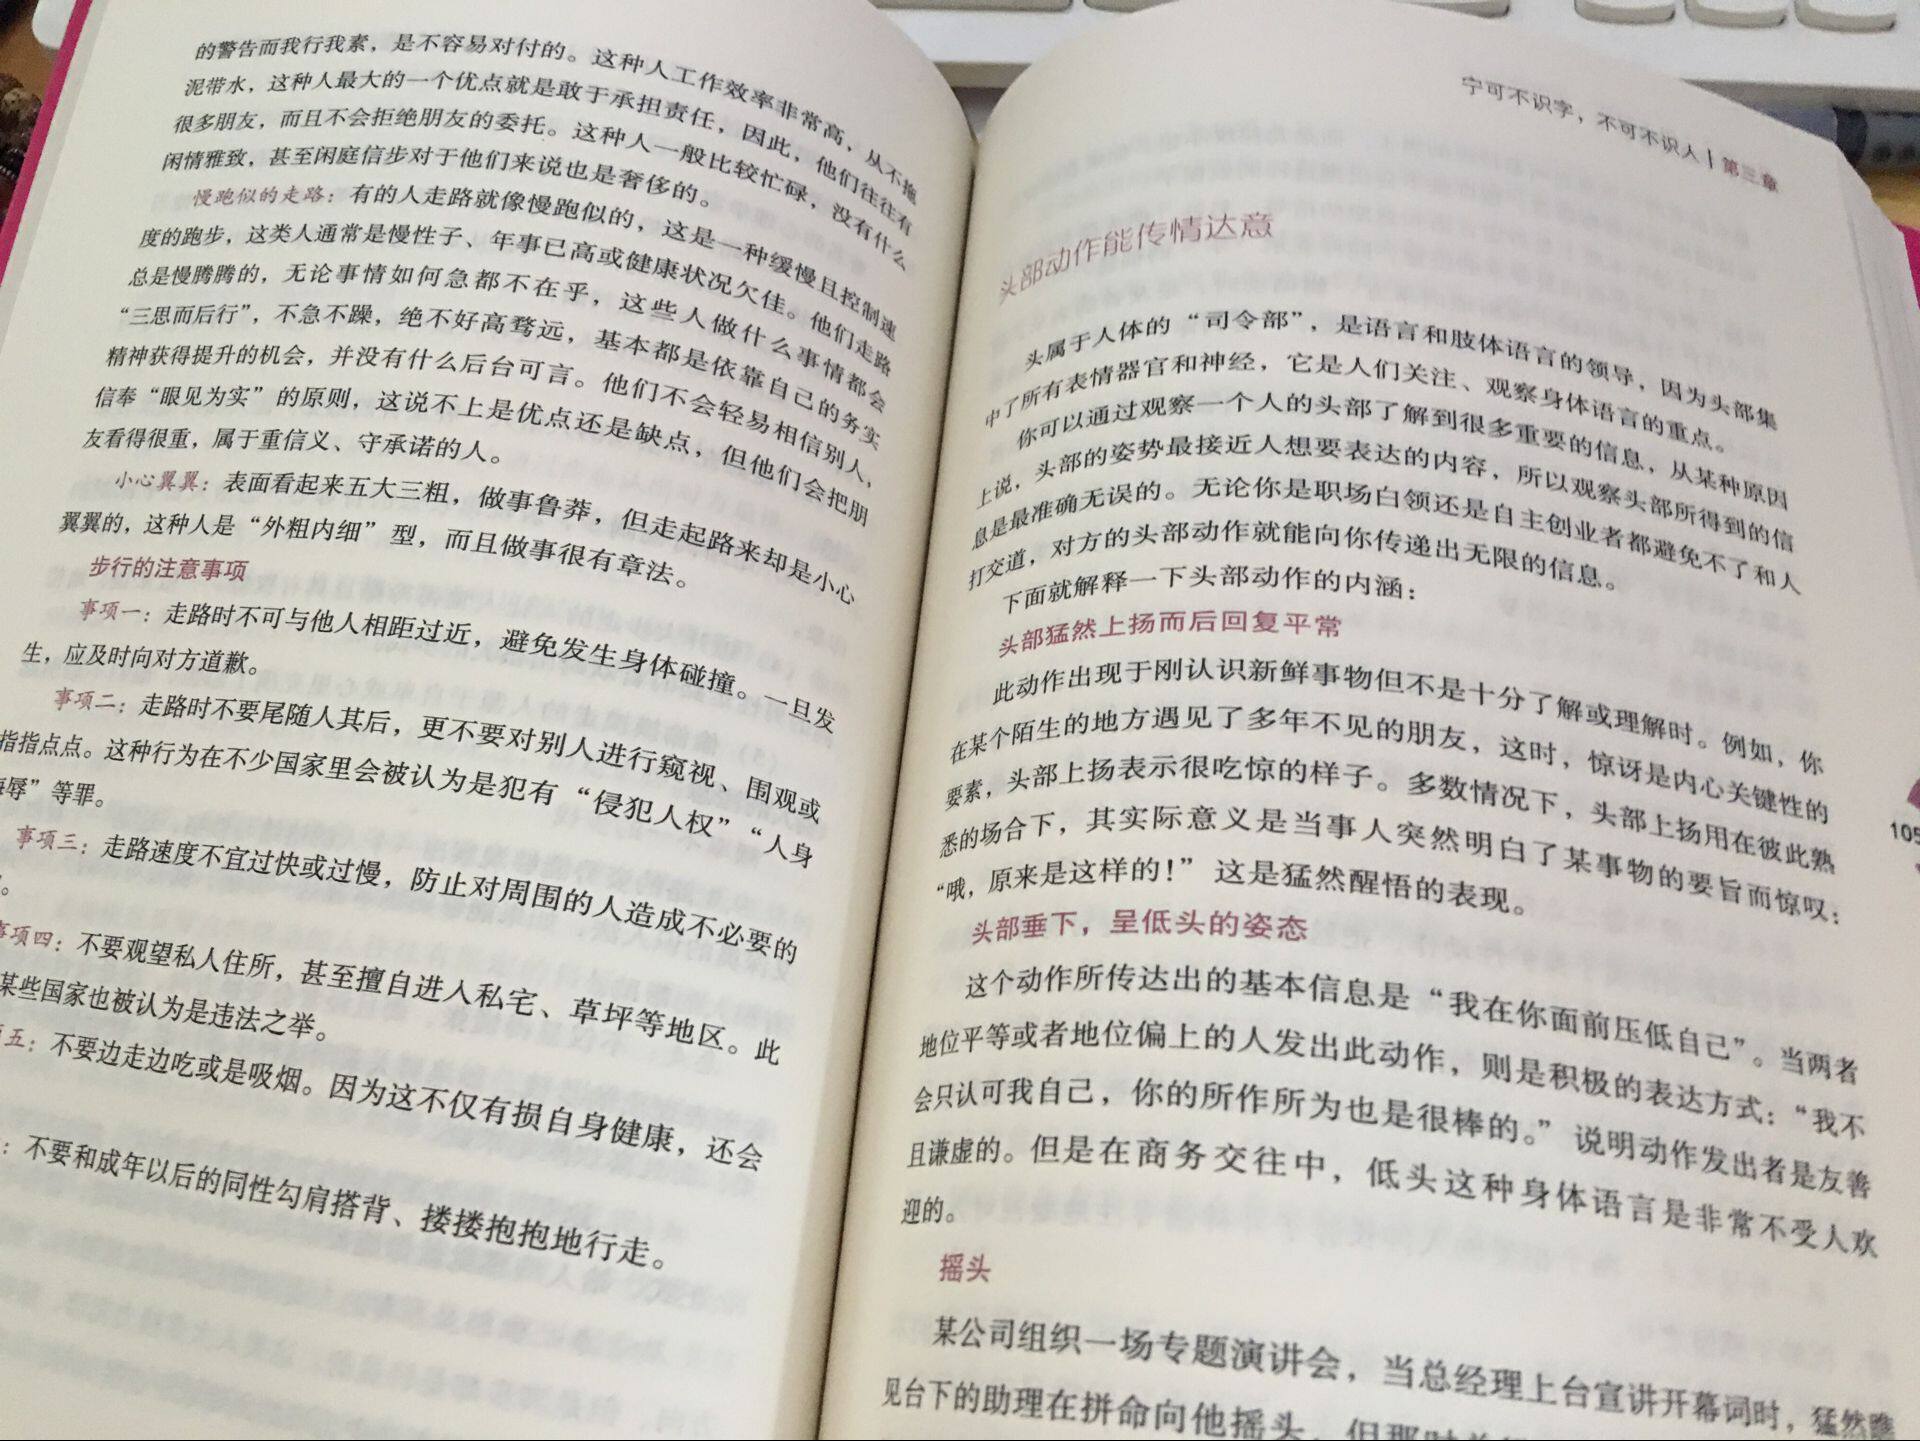 的警告而我行我素，是不容易对付的。这种人工作效率非常高，从不拖
泥带水，这种人最大的一个优点就是敢于承担责任，因此，他们往往有
很多朋友，而且不会拒绝朋友的委托。这种人一般比较忙碌，没有什么
闲情雅致，甚至闲庭信步对于他们来说也是奢侈的。
慢跑似的走路：有的人走路就像慢跑似的，这是一种缓慢且控制速
度的跑步，这类人通常是慢性子、年事已高或健康状况欠佳。他们走路
总是慢腾腾的，无论事情如何急都不在乎，这些人做什么事情都会
“三思而后行”，不急不躁，绝不好高骛远，基本都是依靠自己的务实
精神获得提升的机会，并没有什么后台可言。他们不会轻易相信别人，
信奉“眼见为实”的原则，这说不上是优点还是缺点，但他们会把朋
友看得很重，属于重信义、守承诺的人。
小心翼翼：表面看起来五大三粗，做事鲁莽，但走起路来却是小心
翼翼的，这种人是“外粗内细”型，而且做事很有章法。
步行的注意事项
事项一：走路时不可与他人相距过近，避免发生身体碰撞。一旦发
生，应及时向对方道歉。
事项二：走路时不要尾随人其后，更不要对别人进行窥视、围观或
指指点点。这种行为在不少国家里会被认为是犯有“侵犯人权”“人身
辱”等罪。
事项三：走路速度不宜过快或过慢，防止对周围的人造成不必要的
。
事项四：不要观望私人住所，甚至擅自进入私宅、草坪等地区。此
某些国家也被认为是违法之举。
五：不要边走边吃或是吸烟。因为这不仅有损自身健康，还会
：不要和成年以后的同性勾肩搭背、搂搂抱抱地行走。
宁可不识字，不可不识人 | 第三章
头部动作能传情达意
头属于人体的“司令部”，是语言和肢体语言的领导，因为头部集
中了所有表情器官和神经，它是人们关注、观察身体语言的重点。
你可以通过观察一个人的头部了解到很多重要的信息，从某种原因
上说，头部的姿势最接近人想要表达的内容，所以观察头部所得到的信
息是最准确无误的。无论你是职场白领还是自主创业者都避免不了和人
打交道，对方的头部动作就能向你传递出无限的信息。
下面就解释一下头部动作的内涵：
头部猛然上扬而后回复平常
此动作出现于刚认识新鲜事物但不是十分了解或理解时。例如，你
在某个陌生的地方遇见了多年不见的朋友，这时，惊讶是内心关键性的
要素，头部上扬表示很吃惊的样子。多数情况下，头部上扬用在彼此熟
悉的场合下，其实际意义是当事人突然明白了某事物的要旨而惊叹：
“哦，原来是这样的！”这是猛然醒悟的表现。
105
头部垂下，呈低头的姿态
这个动作所传达出的基本信息是“我在你面前压低自己”。当两者
地位平等或者地位偏上的人发出此动作，则是积极的表达方式：“我不
会只认可我自己，你的所作所为也是很棒的。”说明动作发出者是友善
且谦虚的。但是在商务交往中，低头这种身体语言是非常不受人欢
迎的。
摇头
某公司组织一场专题演讲会，当总经理上台宣讲开幕词时，猛然瞧
见台下的助理在拼命向他摇头，但那时